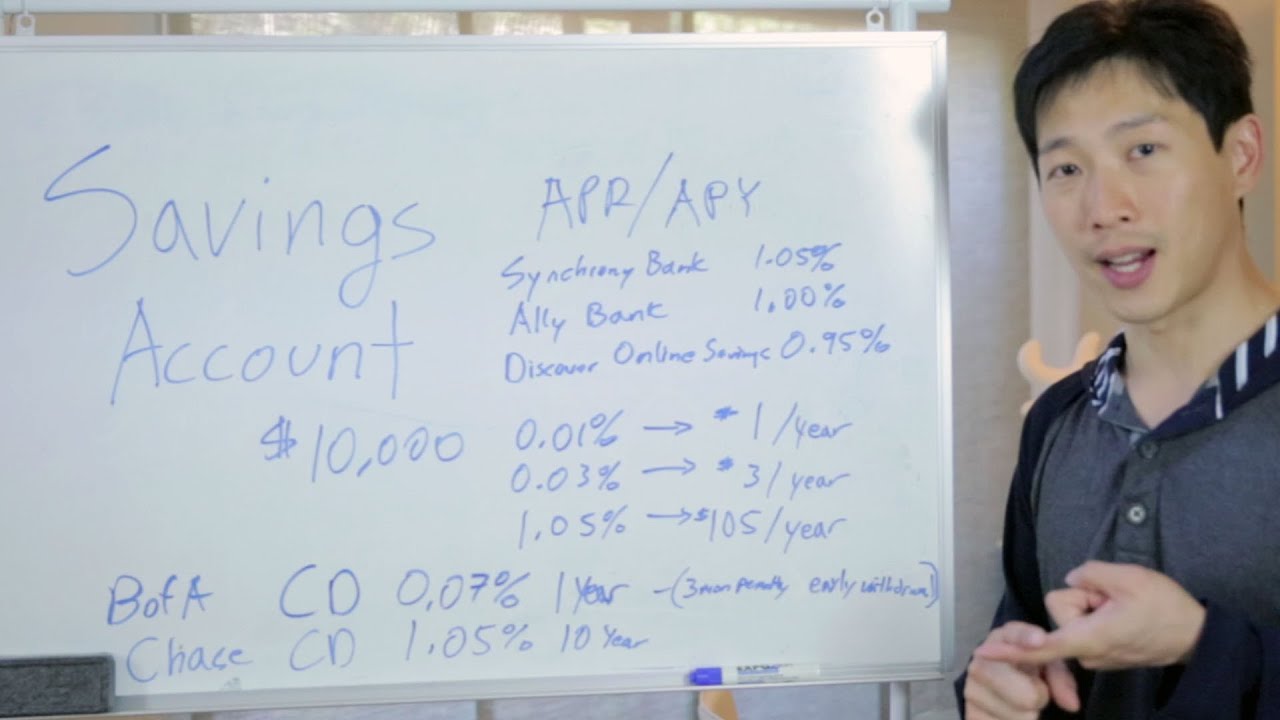 Savings
Account
$10,000
APR/APY
Synchrony Bank 1.05%
Ally Bank 1.00%
Discover Online Savings 0.95%
0.01% → $1/year
0.03% → $3/year
1.05% → $105/year
BofA CD 0.07% 1 Year - (3 mon penalty early withdrawl)
Chase CD 1.05% 10 Year
EXPO